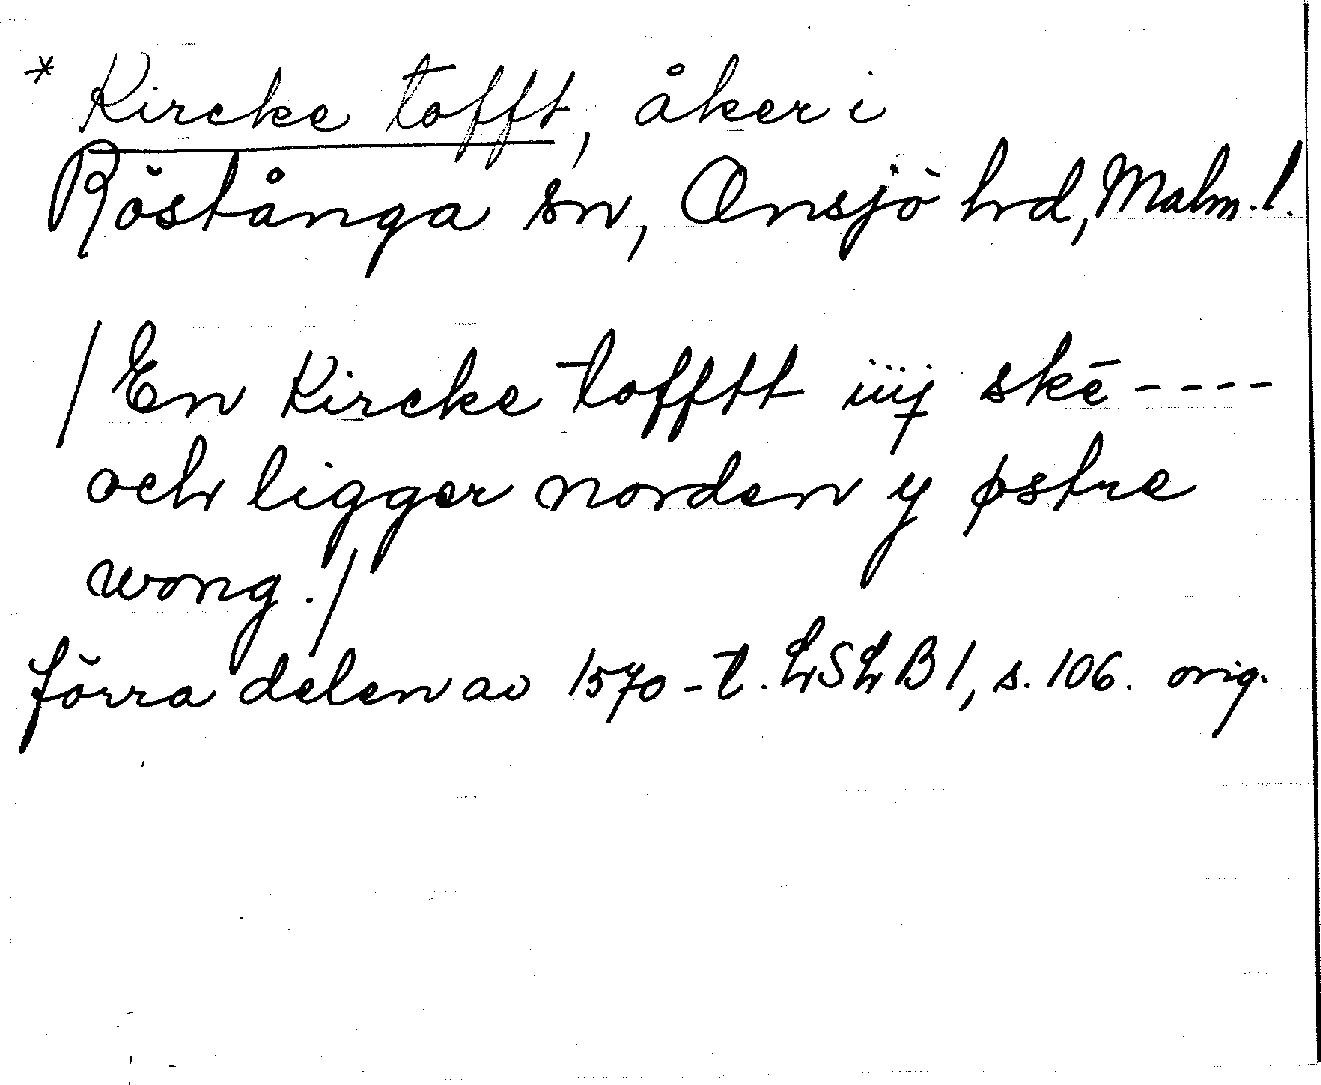 * Kircke tofft, åker i
Röstånga sn, Onsjö hrd, Malm. l.
/ En Kircke tofftt iiij skē ----
och ligger norden y østre
wong. /
förra delen av 1570-t. LSLB 1, s. 106. orig.